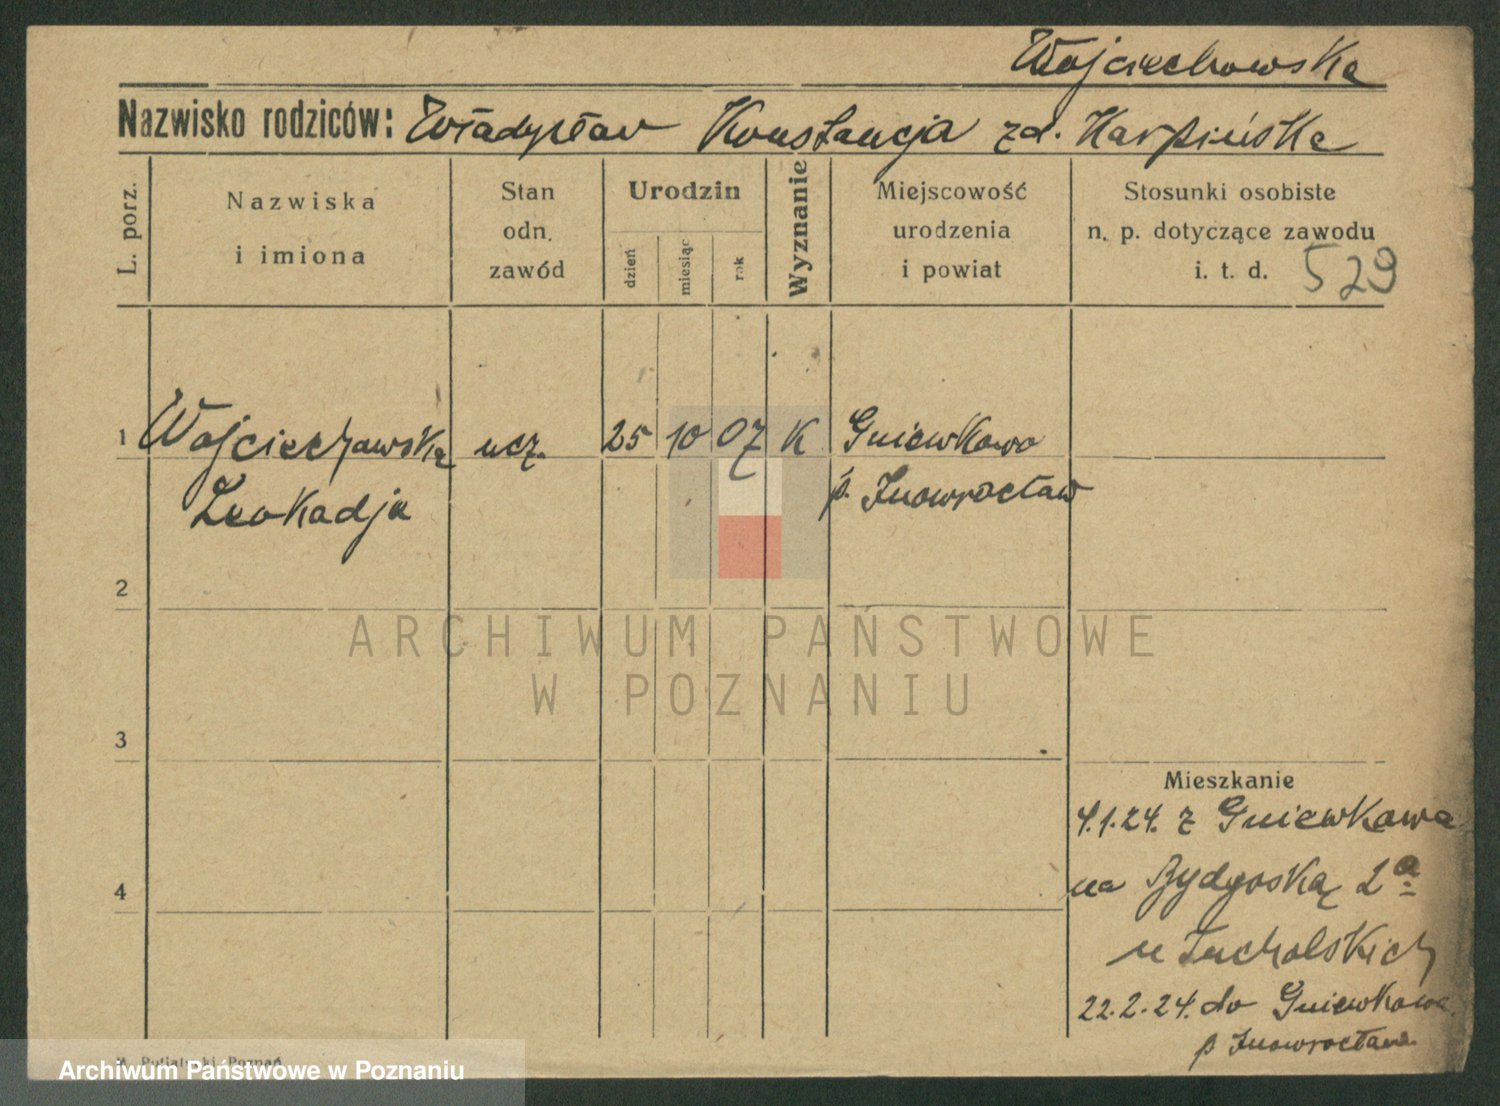 Wojciechowska
Nazwisko rodziców: Władysław Konstancja zd. Karpińska
L. porz.
Nazwiska
i imiona
Stan
odn.
zawód
Urodzin
dzień
miesiąc
rok
Wyznanie
Miejscowość
urodzenia
i powiat
Stosunki osobiste
n. p. dotyczące zawodu
i. t. d.
529
1 Wojciechowska ucz. 25 10 07 K Gniewkowo
Leokadja p. Inowrocław
2
ARCHIWUM PAŃSTWOWE
W POZNANIU
3
Mieszkanie
4.1.24. z Gniewkowa
4 na Bydgoską 2a
u Tucholskich
22.2.24. do Gniewkowa
p Inowrocław
Poznań
Archiwum Państwowe w Poznaniu